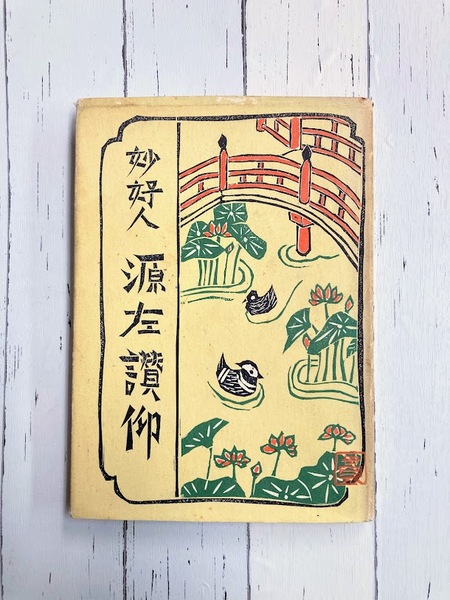 妙好人 源左讃仰